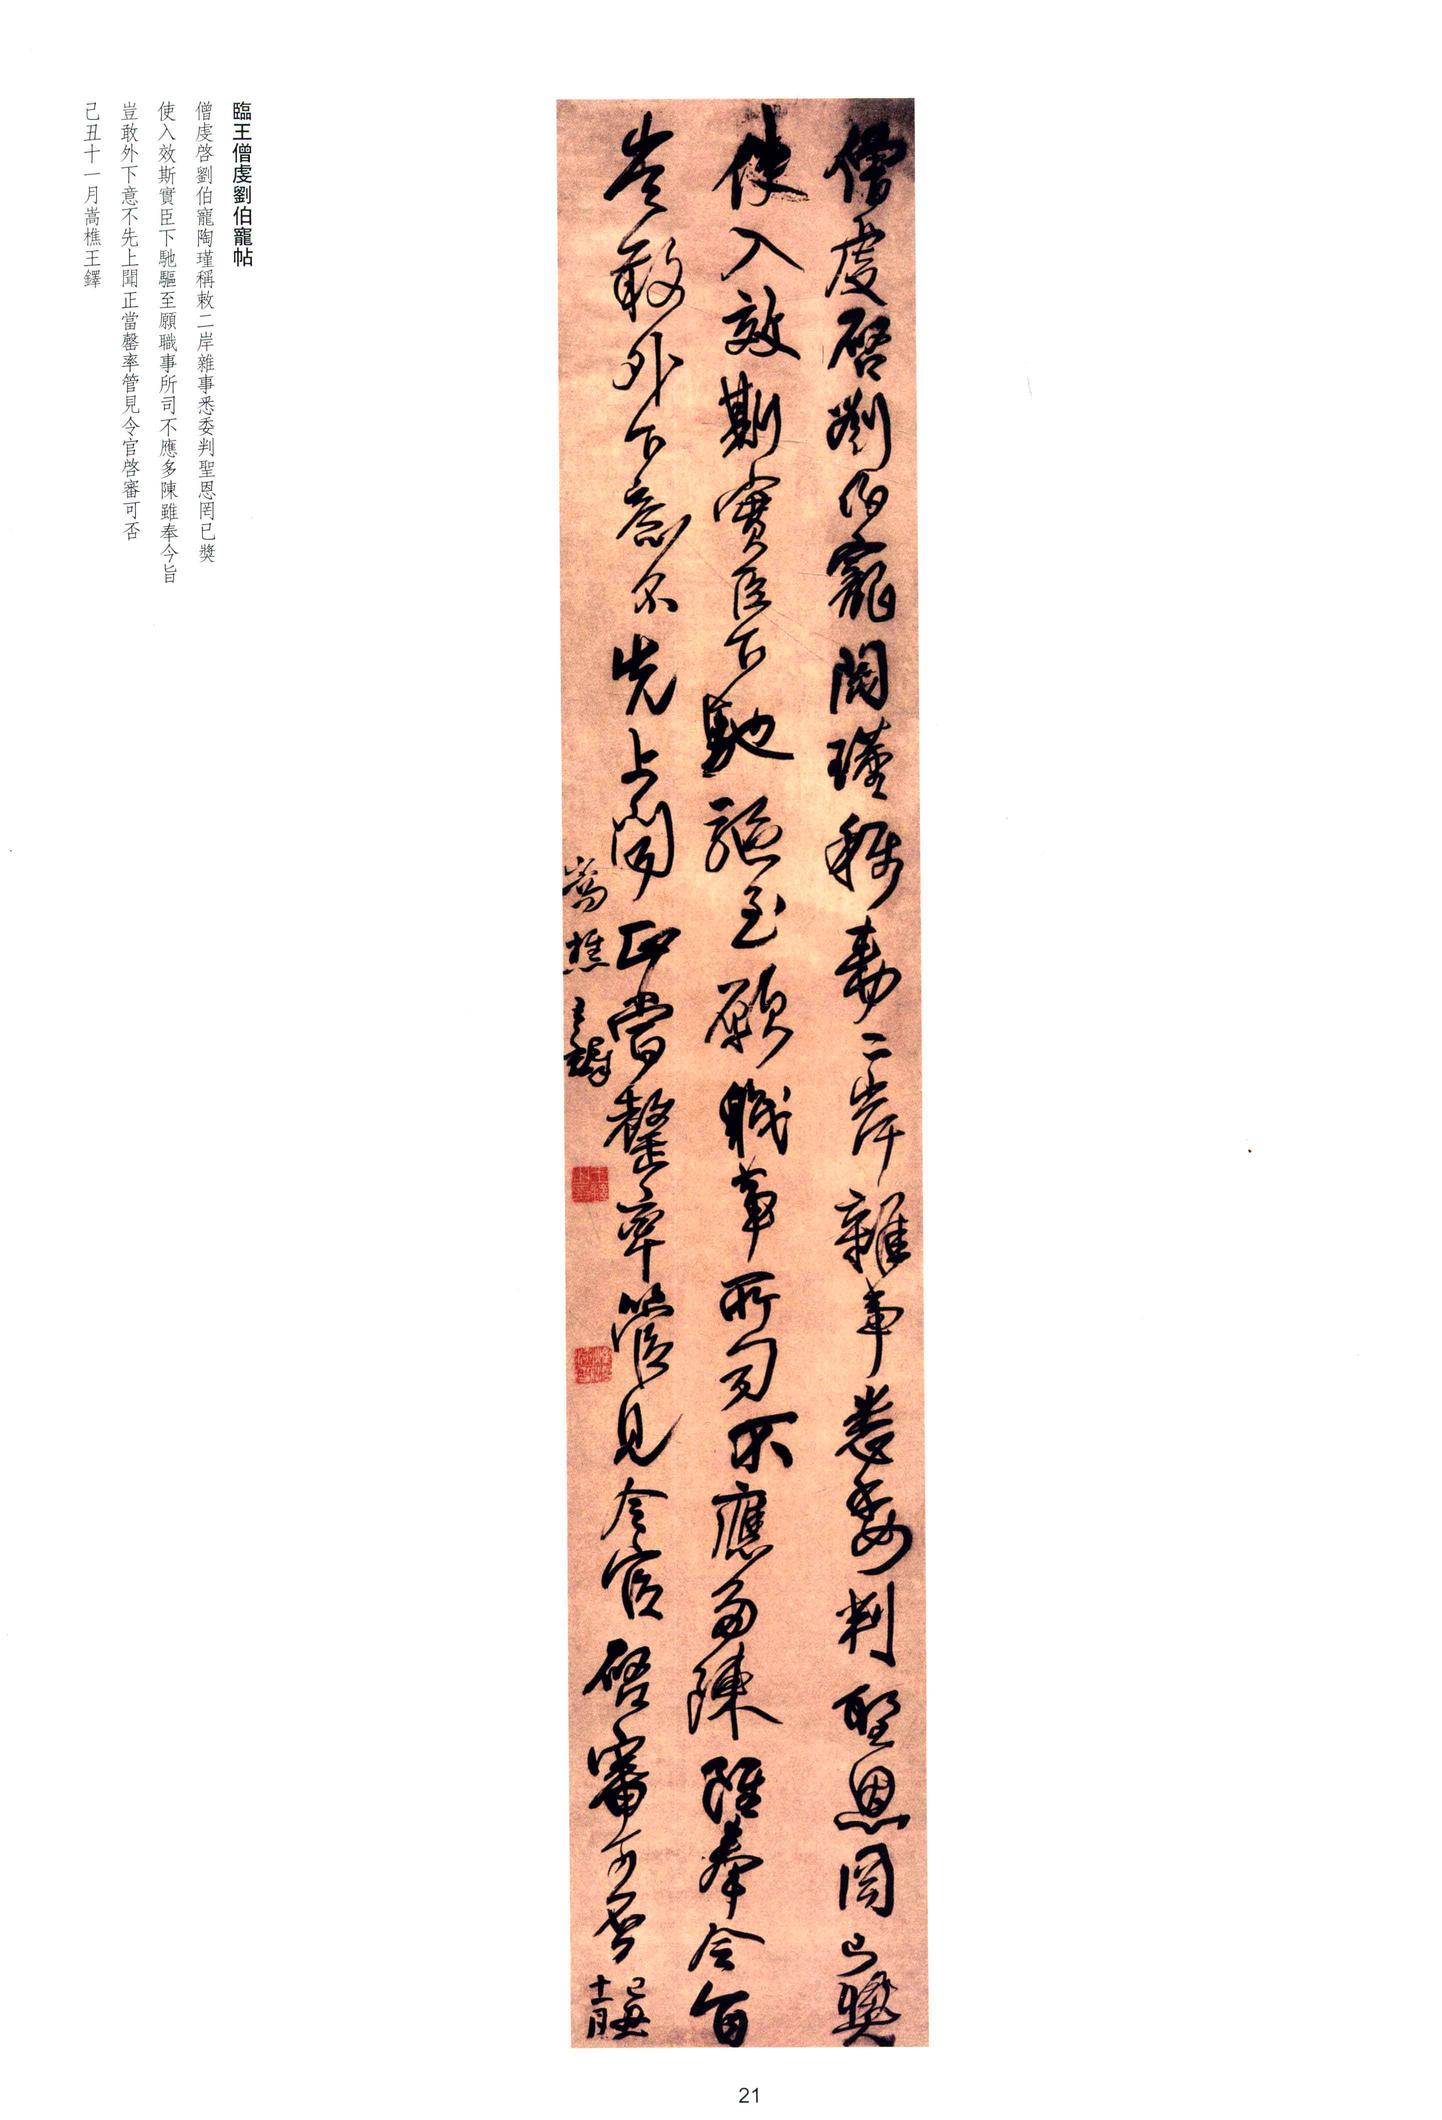 臨王僧虔劉伯寵帖
僧虔啓劉伯寵陶瑾稱敕二岸雜事悉委判聖恩罔已獎
使入效斯實臣下馳驅至願職事所司不應多陳雖奉今旨
豈敢外下意不先上聞正當罄率管見令官啓審可否
己丑十一月嵩樵王鐸
僧虔啓劉伯寵陶瑾稱敕二岸雜事悉委判聖恩罔已獎
使入效斯實臣下馳驅至願職事所司不應多陳雖奉令旨
豈敢外下意不先上聞正當罄率管見令官啓審可否己丑
十一月
嵩樵王鐸
21